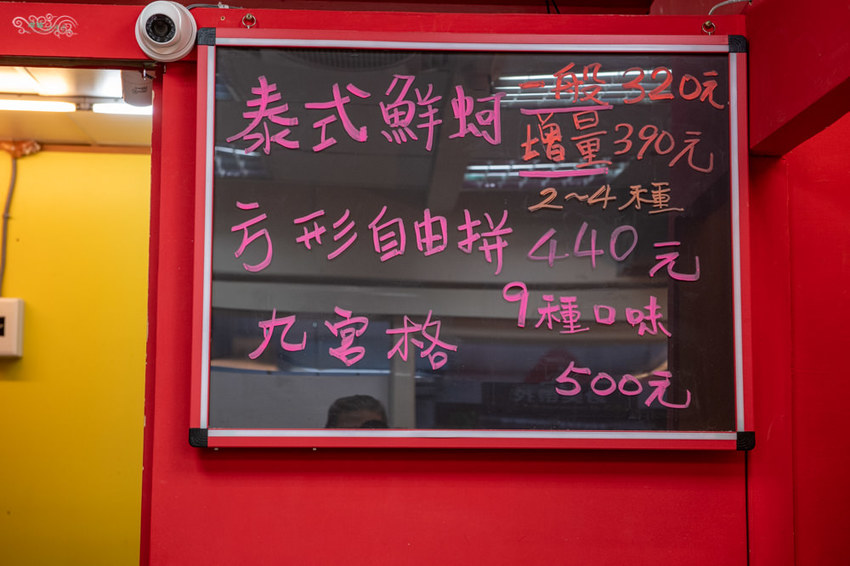 泰式鮮蚵 一般 320元
增量 390元
2~4種
方形自由拼 440元
九宮格 9種口味
500元